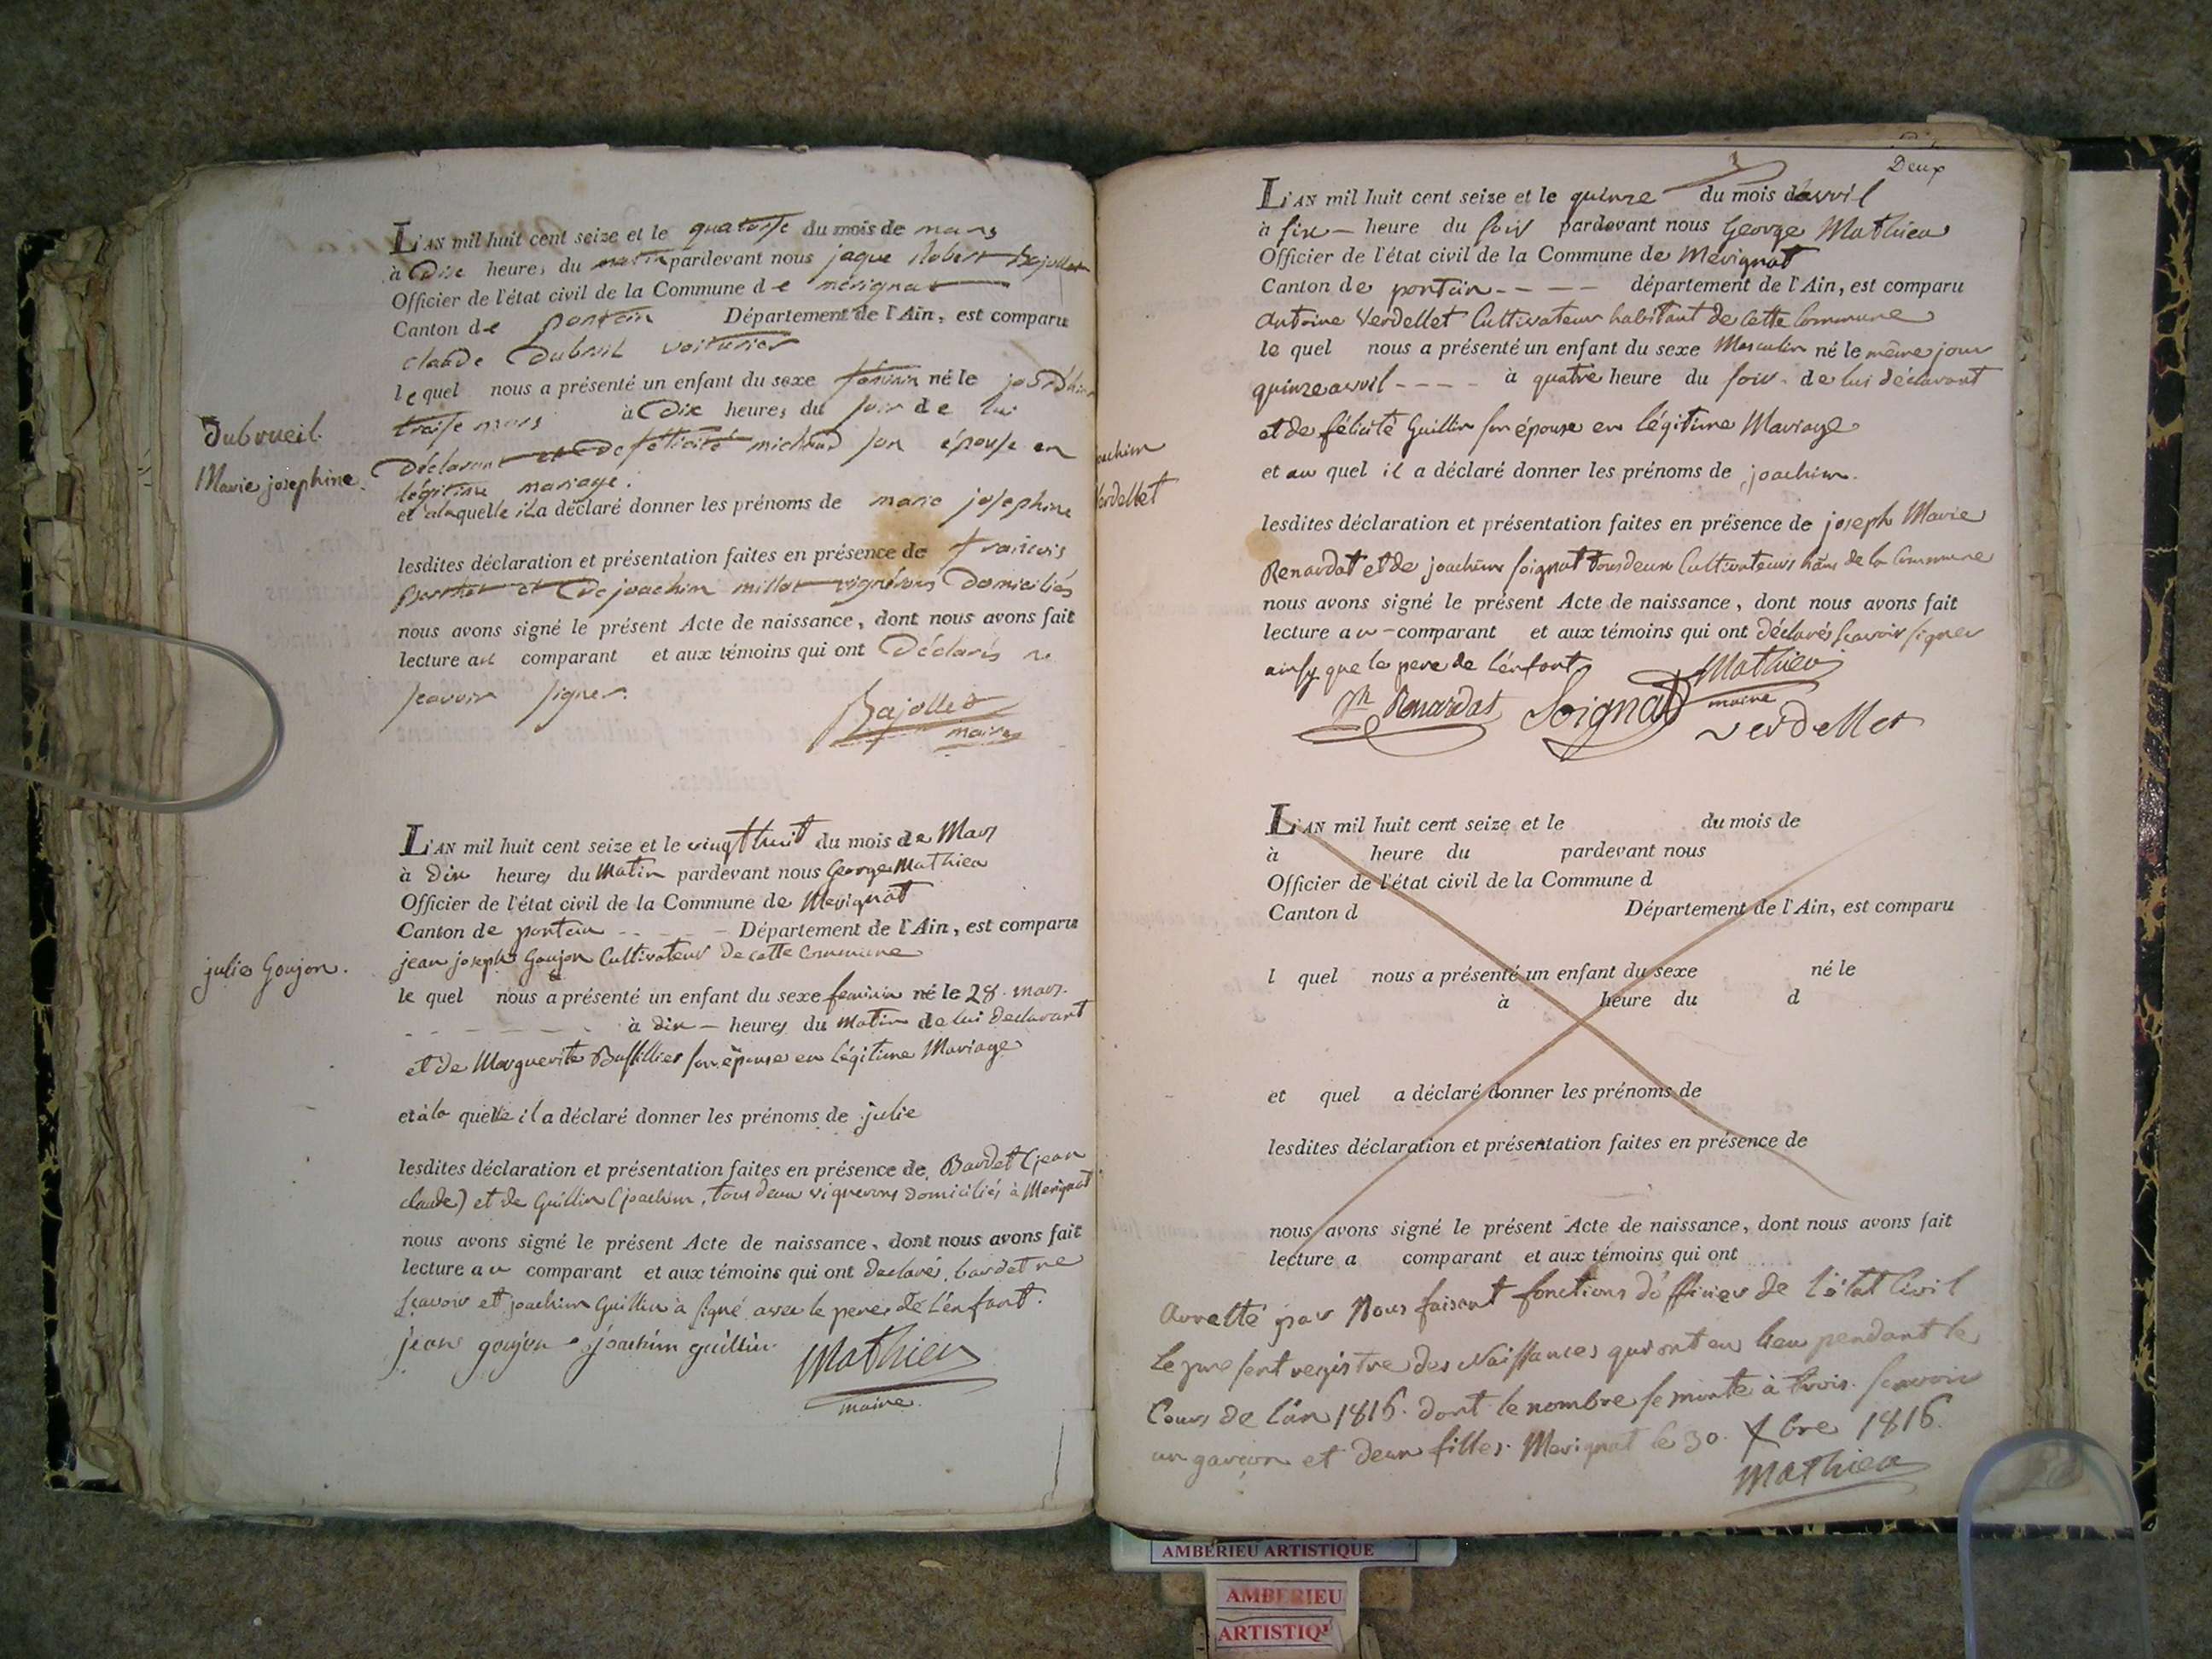 L'AN mil huit cent seize et le quatorse du mois de mars
à Dix heures du matin pardevant nous jaque Robert Bajollet
Officier de l'état civil de la Commune de mérignat
Canton de pontein Département de l'Ain, est comparu
claude Dubruil voiturier
lequel nous a présenté un enfant du sexe féminin né le
traise mars à Dix heures du soir de lui
Déclarant et De félicité michaud son épouse en
légitime mariage.
et alaquelle il a déclaré donner les prénoms de marie josephine
lesdites déclaration et présentation faites en présence de francois
Berthet et De joachim millot vignerons Domiciliés
nous avons signé le présent Acte de naissance, dont nous avons fait
lecture au comparant et aux témoins qui ont Déclarés ne
scavoir signer.
Bajollet
maire
Dubrueil
Marie josephine.
L'AN mil huit cent seize et le vingt huit du mois de Mars
à dix heures du Matin pardevant nous George Mathieu
Officier de l'état civil de la Commune de Merignat
Canton de pontein Département de l'Ain, est comparu
jean joseph Goujon Cultivateur de cette Commune
le quel nous a présenté un enfant du sexe feminin né le 28. mars.
à dix heures du Matin de lui declarant
et de Marguerite son épouse en légitime Mariage
et à la quelle il a déclaré donner les prénoms de julie
lesdites déclaration et présentation faites en présence de Bardet (jean
claude) et de Guillin (joachim, tous deux vignerons domiciliés à Merignat
nous avons signé le présent Acte de naissance, dont nous avons fait
lecture au comparant et aux témoins qui ont declarés, bardet ne
scavoir et joachim Guillin à signé avec le pere de l'enfant.
jean goujon joachim guillin
Mathieu
maire
julie Goujon.
Deux
L'AN mil huit cent seize et le quinze du mois d'avril
à six heure du soir pardevant nous George Mathieu
Officier de l'état civil de la Commune de Merignat
Canton de pontein département de l'Ain, est comparu
Antoine Verdellet Cultivateur habitant de cette Commune
le quel nous a présenté un enfant du sexe Masculin né le même jour
quinze avril à quatre heure du soir de lui déclarant
et de félicité Guillin son épouse en légitime Mariage
et au quel il a déclaré donner les prénoms de joachim.
lesdites déclaration et présentation faites en présence de joseph Marie
Renardat et de joachim soignat tous deux Cultivateurs de la Commune
nous avons signé le présent Acte de naissance, dont nous avons fait
lecture au comparant et aux témoins qui ont déclarés scavoir signer
ainsy que le pere de l'enfant
Mathieu
maire
Renardat Soignat
verdellet
oachim
Verdellet
L'AN mil huit cent seize et le du mois de
à heure du pardevant nous
Officier de l'état civil de la Commune d
Canton d Département de l'Ain, est comparu
l quel nous a présenté un enfant du sexe né le
à heure du d
et quel a déclaré donner les prénoms de
lesdites déclaration et présentation faites en présence de
nous avons signé le présent Acte de naissance, dont nous avons fait
lecture a comparant et aux témoins qui ont
Arretté par Nous faisant fonctions d'officier de l'état Civil
le present registre des Naissances qui ont eu lieu pendant le
Cours de l'an 1816. dont le nombre se monte à trois. scavoir
un garçon et deux filles. Merignat le 30. Xbre 1816.
Mathieu
AMBERIEU ARTISTIQUE
AMBERIEU
ARTISTIQ